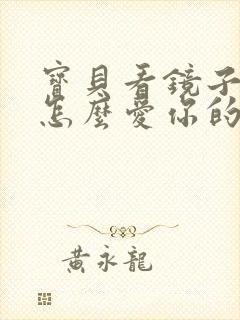 寶貝看鏡子
怎麼愛你的
黃永龍